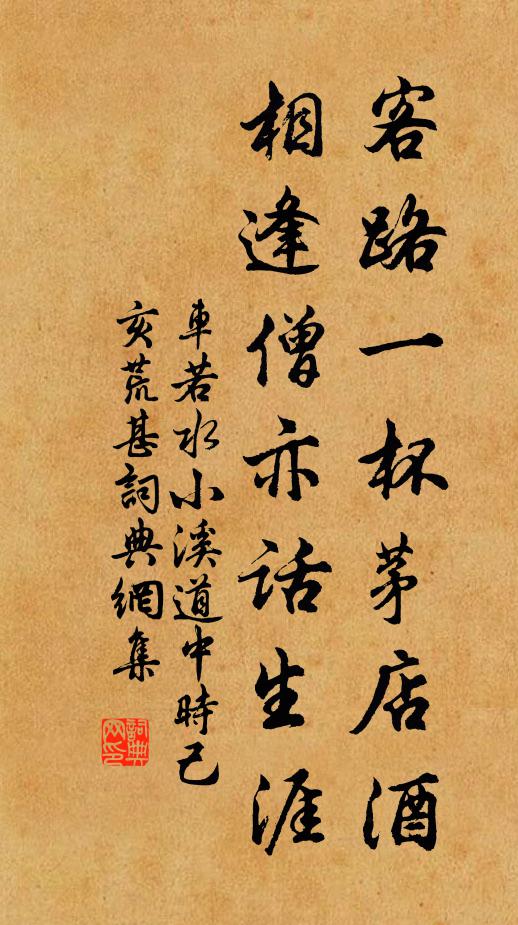 客路一杯茅店酒
相逢僧亦話生涯
車若水小溪道中時己
亥荒甚詞典網集
詞典
网印